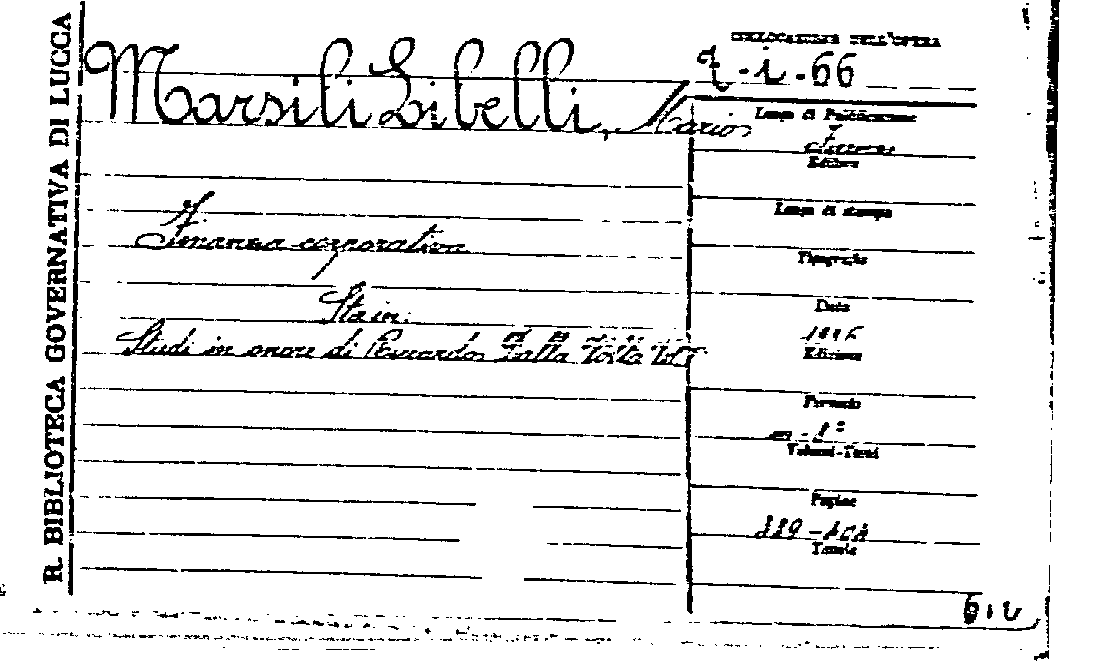 R. BIBLIOTECA GOVERNATIVA DI LUCCA
Marsili Libelli, Mario
Finanza corporativa
Sta in:
Studi in onore di Riccardo Dalla Volta Vol
COLLOCAZIONE DELL'OPERA
7-i-66
Luogo di Pubblicazione
Firenze
Editore
Luogo di stampa
Tipografia
Data
Edizione
Formato
in-8°
Volumi-Tomi
Pagine
Tavole